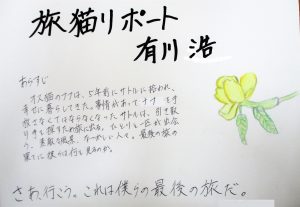 旅猫リポート
有川 浩
あらすじ
オス猫のナナは、5年前にサトルに拾われ、
幸せに暮らしてきた。事情があってナナを手
放さなくてはならなくなったサトルは、引き取
り手を探すため旅に出る。
、素敵な風景、なつかしい人々。最後の旅の
果てに僕らは何を見るのか。
さあ行こう。これは僕らの最後の旅だ。